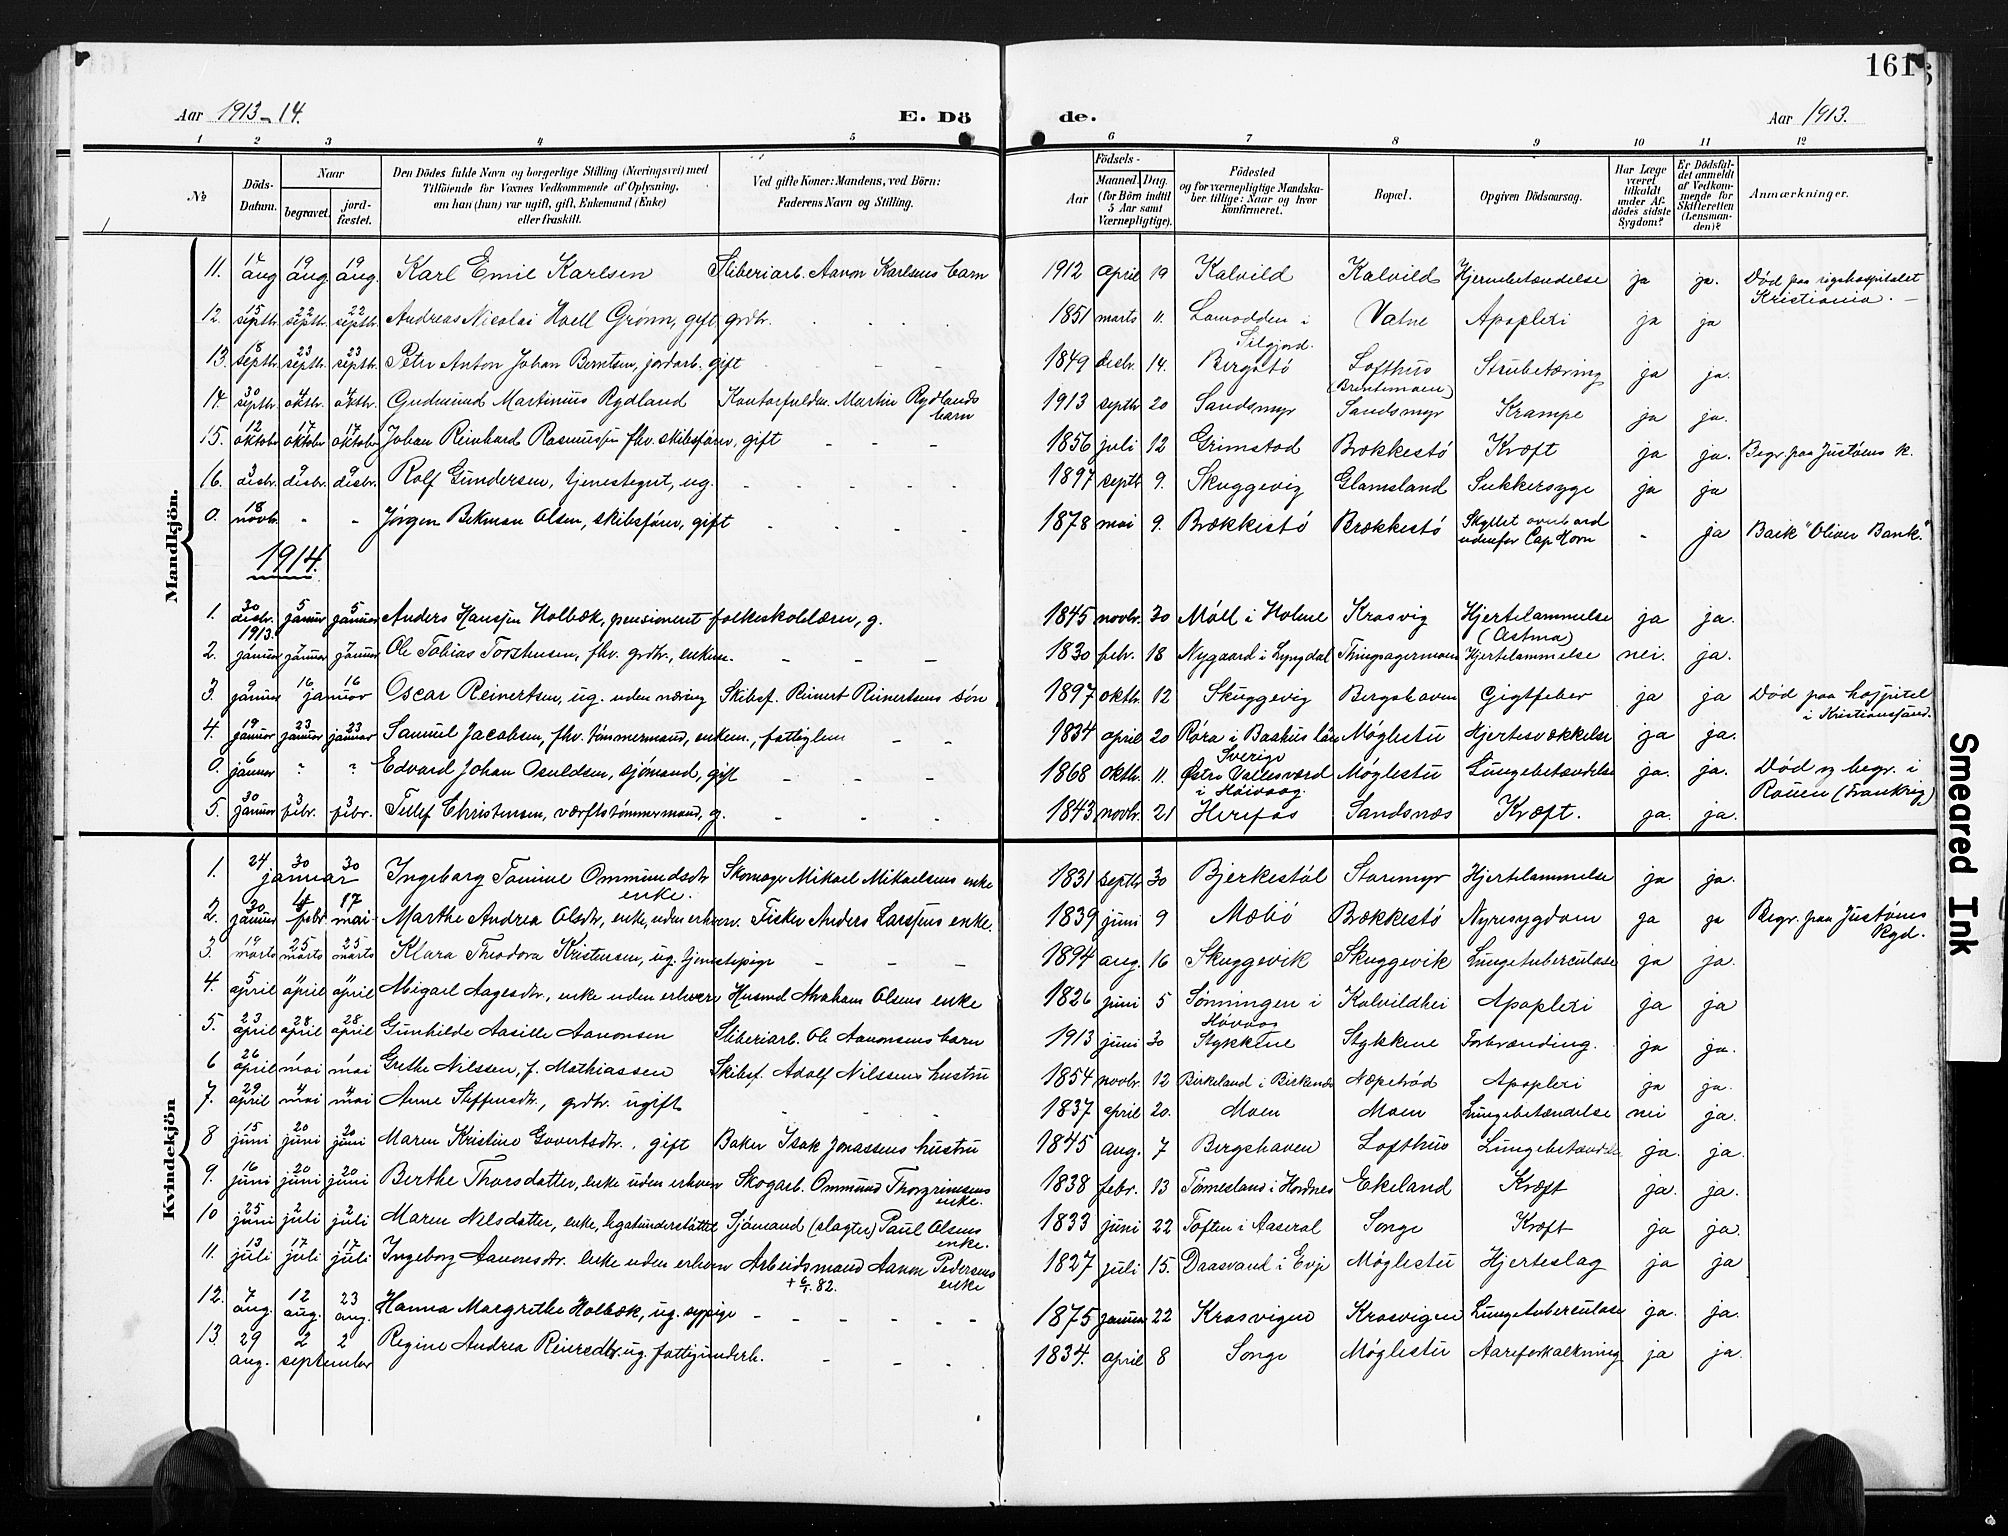 161
Aar 1913-14.
E. Dö
de.
Aar 1913.
1 2 3 4 5 6 7 8 9 10 11 12
No
Döds-Datum.
Naar
begravet.
jord-fæstet.
Den Dödes fulde Navn og borgerlige Stilling (Næringsvei) med
Tilföiende for Voxnes Vedkommende af Oplysning,
om han (hun) var ugift, gift, Enkemand (Enke)
eller fraskilt.
Ved gifte Koner: Mandens, ved Börn:
Faderens Navn og Stilling.
Födsels-
Aar
Maaned. Dag.
(for Börn indtil
5 Aar samt
Værnepligtige).
Födested
og for værnepligtige Mandska-
ber tillige: Naar og hvor
konfirmeret.
Bopæl.
Opgiven Dödsaarsag.
Har Læge
været
tilkaldt
under Af-
dödes sidste
Sygdom?
Er Dödsfal-
det anmeldt
af Vedkom-
mende for
Skifteretten
(Lensman-
den)?
Anmærkninger.
Mandkjön.
11. aug 19 aug. 19 aug. Karl Emil Karlsen Sliberiarb. Aanon Karlsens barn 1912 april 19 Kalvild Kalvild Hjernebetændelse ja ja. Död paa rigshospitalet
Kristiania.
12. 15 septbr. 22 septbr. 22 septbr. Andreas Nicolai Hoell Grönn, gift grdbr. 1851 marts 11. Lamodden i Vatne Apoplexi ja ja
Silgjord.
13. 18 septbr. 23 septbr. 23 septbr. Peter Anton Johan Berntsen, jordarb. gift 1849 desbr. 14. Bergstö Lofthus Strubetæring ja ja.
(Brentemoen)
14. 30 septbr. 4 oktbr. 4 oktbr. Gudmund Martinius Rydland Kontorfuldm. Martin Rydlands 1913 septbr 20 Sandsmyr Sandsmyr Krampe ja ja.
barn
15. 12 oktober 17 oktober 17 oktober Johan Reinhard Rasmussen fhv. skibsförer, gift 1856 juli 12 Grimstad Brækkestö Kræft ja ja. Begr. paa Justöens k.
16. 3 desbr. 9 desbr. 9 desbr. Rolf Gundersen, tjenestegut, ug. 1897 septbr 9. Skuggevig Glamsland Sukkersyge ja ja
0. 18 novbr. Jörgen Bekman Olsen, skibsförer, gift 1878 mai 9. Brækkestö Brækkestö Skyllet overbord - ja Bark "Oliver Bank."
udenfor Cap Horn
1914.
1. 30 desbr. 1913. 5 januar 5 januar Anders Hanssen Holbæk, pensioneret folkeskolelærer, g. 1845 novbr. 30 Möll i Holme Krosvig Hjertelammelse ja ja.
(Astma)
2. januar 7 januar 7 januar Ole Tobias Torstensen, fhv. grdbr., enkem. 1830 febr. 18 Nygaard i Lyngdal Thingsagermoen Hjertelammelse nei. ja.
3. 9 januar 16 januar 16 Oscar Reinertsen, ug. uden næring Skibsf. Reinert Reinertsens sön 1897 oktbr. 12 Skuggevig Bergshaven Gigtfeber ja ja Död paa hospitel
i Kristiansand.
4. 19 januar 23 januar 23 januar Samuel Jacobsen, fhv. tömmermand, enkem., fattiglem 1834 april 20 Röra i Baahus län Möglestu Hjertesvækkelse ja ja.
Sverige
0. 6 januar ? ? Edvard Johan Osuldsen, sjömand, gift 1868 oktbr. 11. Östre Vallesværd Möglestu Lungebetændelse ja. ja. Död og begr. i
i Höivaag. Rouen (Frankrig)
5. 30 januar 3 febr. 3 febr. Tellef Christensen, værftstömmermand, g. 1843 novbr. 21 Herefos Sandsnæs Kræft. ja. ja.
Kvindekjön
1. 24 30 30 januar Ingeborg Tomine Ommundsdtr Skomager Mikael Mikaelsens enke 1831 septbr 30 Bjerkestöl Storemyr Hjertelammelse ja ja.
enke.
2. 30 januar febr. 17 mai Marthe Andrea Olsdtr, enke, uden erhverv. Fisker Anders Larssens enke. 1839 juni 9 Mæbö Brækkestö Nyresygdom ja ja Begr. paa Justöens
kgd.
3. 19 marts 25 marts 25 marts Klara Theodora Kristensen, ug. tjenestepige 1894 aug. 16 Skuggevik Skuggevik Lungetuberculose ja ja.
4. 5 april 11 april 11 april Abigael Aagesdtr., enke uden erhverv Husmd Abraham Olsens enke 1826 juni 5 Sönningen i Kalvildhei Apoplexi ja ja
Hövaag
5. 23 april 28 april 28 april Gunhilde Aasille Aanonsen Sliberiarb. Ole Aanonsens barn 1913 juni 30 Stykkene Stykkene Forbrænding. ja ja.
6 26 april 1 mai 1 mai Grethe Nilssen, f. Mathiassen Skibsf. Adolf Nilssens hustru 1854 novbr. 12 Birkeland i Birkenæs Næpeböd Apoplexi ja ja.
7. 29 april 4 mai 4 mai Anne Steffensdtr., grdbr. ugift 1837 april 20. Moen Moen Lungebetændelse nei ja.
8 15 juni 20 juni 20 juni Maren Kristine Govertsdtr., gift Baker Isak Jonassens hustru 1845 aug. 7 Bergshaven Lofthus Lungebetændelse ja. ja.
9. 16 juni 20 juni 20 juni Berthe Thorsdatter, enke uden erhverv Skogarb. Ommund Thorgrimsens 1838 febr. 13 Tönnesland i Hordnes Ekeland Kræft ja. ja.
enke.
10 25 juni 2 juli 2 juli Maren Nilsdatter, enke, legatunderstöttet Sjömand (slagter) Paul Olsens 1833 juni 22 Toften i Aaseral Songe Kræft ja ja.
enke.
11. 13 juli 17 juli 17 juli Ingeborg Aanonsdtr. enke uden erhverv Arbeidsmand Aanon Pedersens 1827 juli 15. Draasvand i Evje Möglestu Hjerteslag ja ja
+ 6/1. 82. enke
12. 7 aug. 12 aug. 23 aug. Hanna Margrethe Holbæk, ug. sypige 1875 januar 22 Krosvigen Krosvigen Lungetuberculose ja. ja.
13. 29 aug. 2 2 september Regine Andrea Reiersdtr. ug. fattigunderh. 1834. april 8 Songe Möglestu Aareforkalkning ja ja.
Smeared Ink